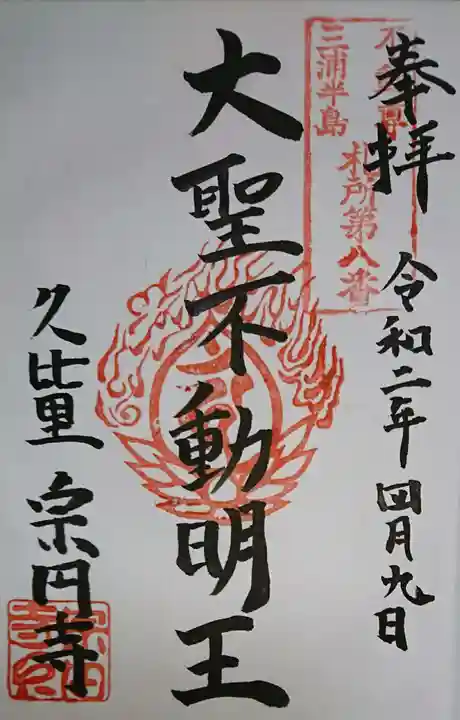 奉拝
令和二年四月九日
三浦半島
札所第八番
大聖不動明王
久比里
宗円寺